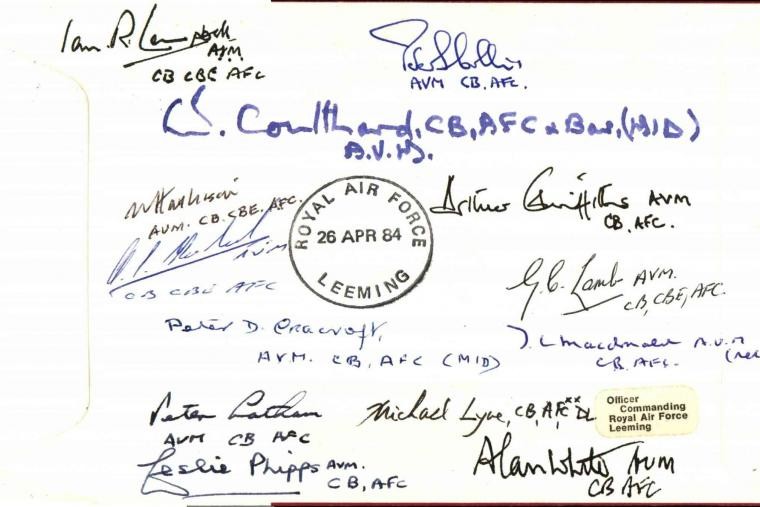 Ian R.
AVM
CB CBE AFC
Peter S Collins
AVM CB. AFC.
C. Coulthard, CB, AFC & Bar, (MID)
A.V.M.
AVM. CB. CBE. AFC.
AVM
CB CBE AFC
ROYAL AIR FORCE
26 APR 84
LEEMING
Arthur Griffiths AVM
CB, AFC.
G.C. Lamb AVM.
CB, CBE, AFC.
Peter D. Cracroft,
AVM. CB, AFC (MID)
A.V.M
CB. AFC.
Peter Latham
AVM CB AFC
Michael Lyne, CB, AFC xx DL
Officer
Commanding
Royal Air Force
Leeming
Leslie Phipps AVM.
CB, AFC
Alan White AVM
CB AFC